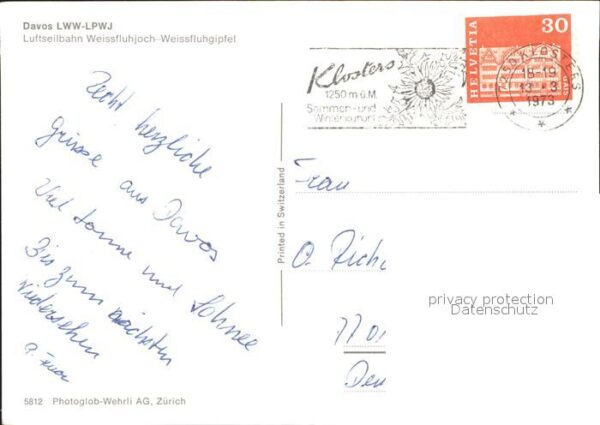 Davos LWW-LPWJ
Luftseilbahn Weissfluhjoch-Weissfluhgipfel
HELVETIA 30
Klosters
1250 m ü.M.
Sommer- und
Winterkurort
7250 KLOSTERS
18-19
13.-3.
1973
Recht herzliche
Grüsse aus Davos
Viel Sonne und Schnee
Bis zum nächsten
Wiedersehen
Printed in Switzerland
Frau
privacy protection
Datenschutz
5812 Photoglob-Wehrli AG, Zürich